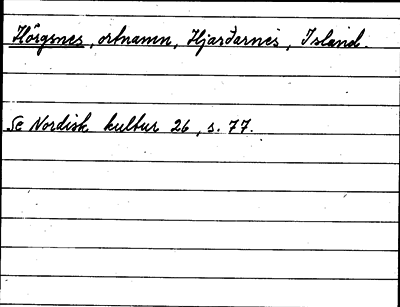 Hörgsnes, ortnamn, Hjarðarnes, Island.
Se Nordisk kultur 26, s. 77.